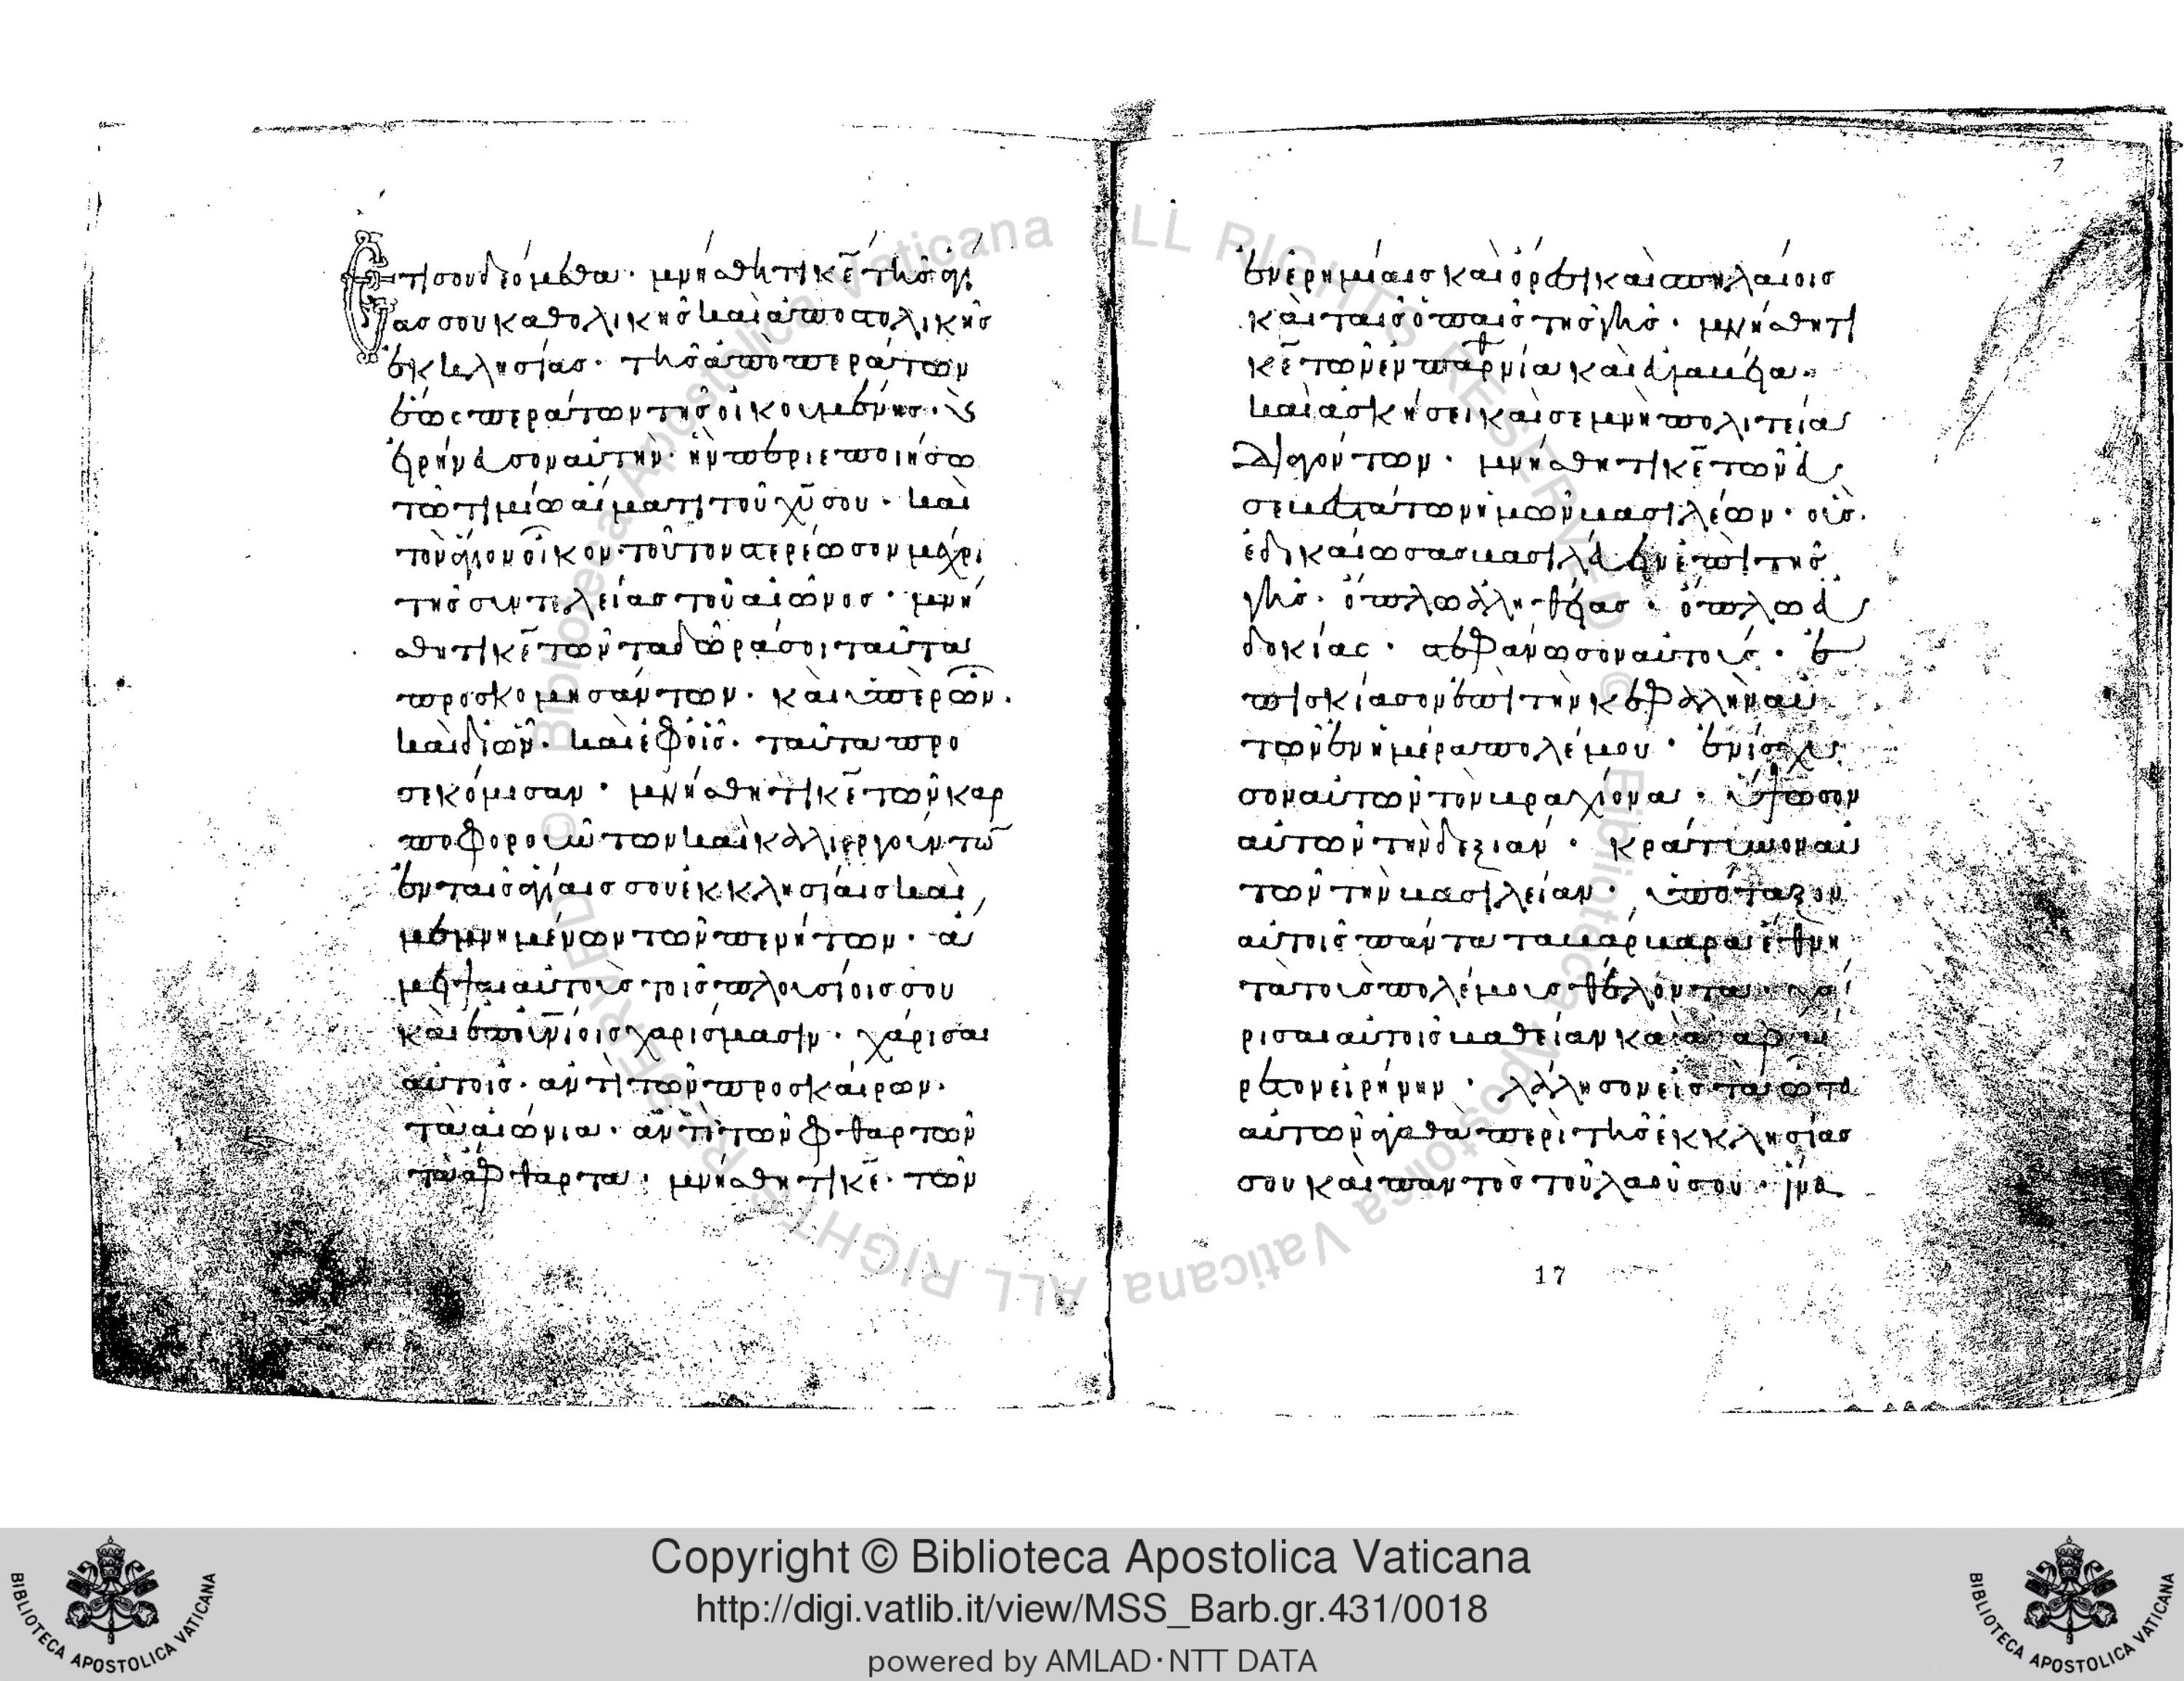 Ἔτι σου δεόμεθα· μνήσθητι κ̅ε̅ τῆς ἁγί
ας σου καθολικῆς καὶ ἀποστολικῆς
ἐκκλησίας· τῆς ἀπὸ περάτων
ἕως περάτων τῆς οἰκουμένης· ϗ
εἰρήνευσον αὐτὴν· ἣν περιεποιήσω
τῶ τιμίω αἵματι τοῦ χ̅υ̅ σου· καὶ
τὸν ἅγιον οἶκον τοῦτον στερέωσον μέχρι
τῆς συντελείας τοῦ αἰῶνος· μνή
σθητι κ̅ε̅ τῶν τὰ δῶρά σοι ταῦτα
προσκομησάντων· καὶ ὑπὲρ ὧν·
καὶ δι ὧν· καὶ ἐφ οἷς· ταῦτα προ
σεκόμισαν· μνήσθητι κ̅ε̅ τῶν καρ
ποφορούντων καὶ καλλιεργούντω̅
ἐν ταῖς ἁγίαις σου ἐκκλησίαις καὶ
μεμνημένων τῶν πενήτων· ἄ
μειψαι αὐτοὺς τοῖς πλουσίοις σου
καὶ ἐπουν̅ίοις χαρίσμασιν· χάρισαι
αὐτοῖς· ἀντὶ τῶν προσκαίρων·
τὰ αἰώνια· ἀντὶ τῶν φθαρτῶν
τὰ ἄφθαρτα· μνήσθητι κ̅ε̅· τῶν
ἐν ἐρημίαις καὶ ὄρεσι καὶ σπηλαίοις
καὶ ταῖς ὀπαῖς τῆς γῆς· μνήσθητι
κ̅ε̅ τῶν ἐν παρθενία καὶ εὐλαβεία·
καὶ ἀσκήσει καὶ σεμνῆ πολιτεία
διαγόντων· μνήσθητι κ̅ε̅ τῶν εὐ
σεβεστάτων ἡμῶν βασιλέων· οὓς
ἐδικαίωσας βασιλεύειν ἐπὶ τῆς
γῆς· ὅπλω ἀληθείας· ὅπλω εὐ
δοκίας· στεφάνωσον αὐτούς· ἐ
πισκίασον ἐπὶ τὴν κεφαλὴν αὐ
τῶν ἐν ἡμέρα πολέμου· ἐνίσχυ
σον αὐτῶν τὸν βραχίονα· ὕψωσον
αὐτῶν τὴν δεξιάν· κράτυνον αὐ
τῶν τὴν βασιλείαν· ὑπόταξον
αὐτοῖς πάντα τὰ βάρβαρα ἔθνη
τὰ τοὺς πολέμους θέλοντα· χά
ρισαι αὐτοῖς βαθεῖαν καὶ ἀναφαί
ρετον εἰρήνην· λάλησον εἰς τὰ ὦτα
αὐτῶν ἀγαθὰ περὶ τῆς ἐκκλησίας
σου καὶ παντὸς τοῦ λαοῦ σου· ἵνα
17
Copyright © Biblioteca Apostolica Vaticana
http://digi.vatlib.it/view/MSS_Barb.gr.431/0018
powered by AMLAD·NTT DATA
BIBLIOTECA APOSTOLICA VATICANA
BIBLIOTECA APOSTOLICA VATICANA